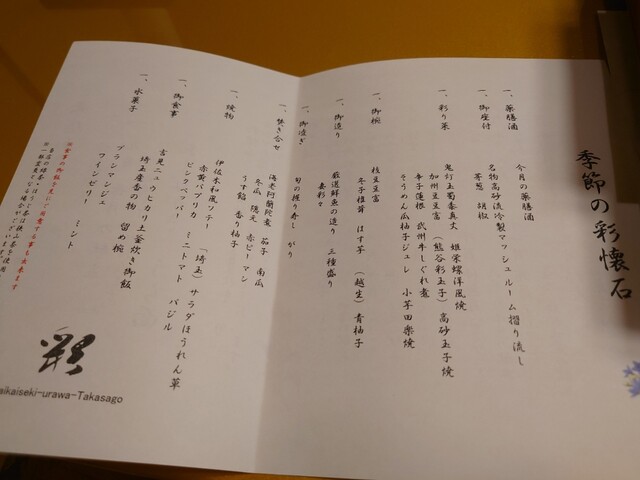 季節の彩懐石
一、薬膳酒
今月の薬膳酒
一、御座付
名物高砂流冷製マッシュルーム摺り流し
芽葱 胡椒
一、彩り菜
鬼灯玉蜀黍真丈 姫栄螺洋風焼
加州豆富(熊谷彩玉子)高砂玉子焼
辛子蓮根 武州牛しぐれ煮
そうめん瓜柚子ジュレ 小芋田楽焼
一、御椀
枝豆豆富
冬子椎茸 はす芋 (越生)青柚子
一、御造り
厳選鮮魚の造り 三種盛り
妻彩々
一、御凌ぎ
旬の握り寿し がり
一、焚き合せ
海老阿蘭陀煮 茄子 南瓜
冬瓜 隠元 赤ピーマン
うす餡 香り柚子
一、焼物
伊佐木和風ソテー 「埼玉」サラダほうれん草
赤黄パプリカ ミニトマト バジル
ピンクペッパー
一、御食事
吉見ニュウヒカリ土釜炊き御飯
埼玉産香の物 留め椀
一、水菓子
ブランマンジェ
ワインゼリー ミント
彩
aikaiseki-urawa-Takasago